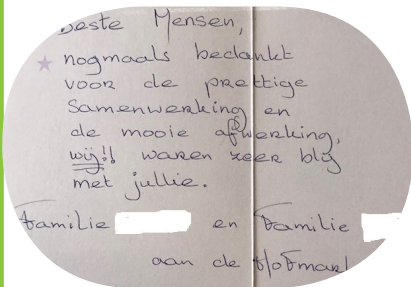 Beste Mensen,
nogmaals bedankt
voor de prettige
samenwerking en
de mooie afwerking,
wij!! waren zeer blij
met jullie.
Familie en Familie
aan de